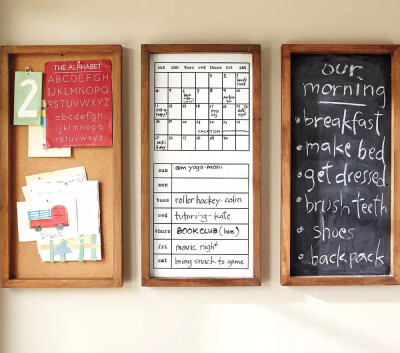 2
THE ALPHABET
ABCDEFGH
IJKLMNOPQ
RSTUVWXYZ
abcdefgh
ijklmnopq
rstuvwxyz
SUN MON TUES WED THURS FRI SAT
VACATION
SUN am yoga-mom
MON
TUES roller hockey-colin
WED tutoring-kate
THURS BOOK CLUB (here)
FRI movie night
SAT bring snack to game
our
morning
• breakfast
• make bed
• get dressed
• brush teeth
• shoes
• backpack